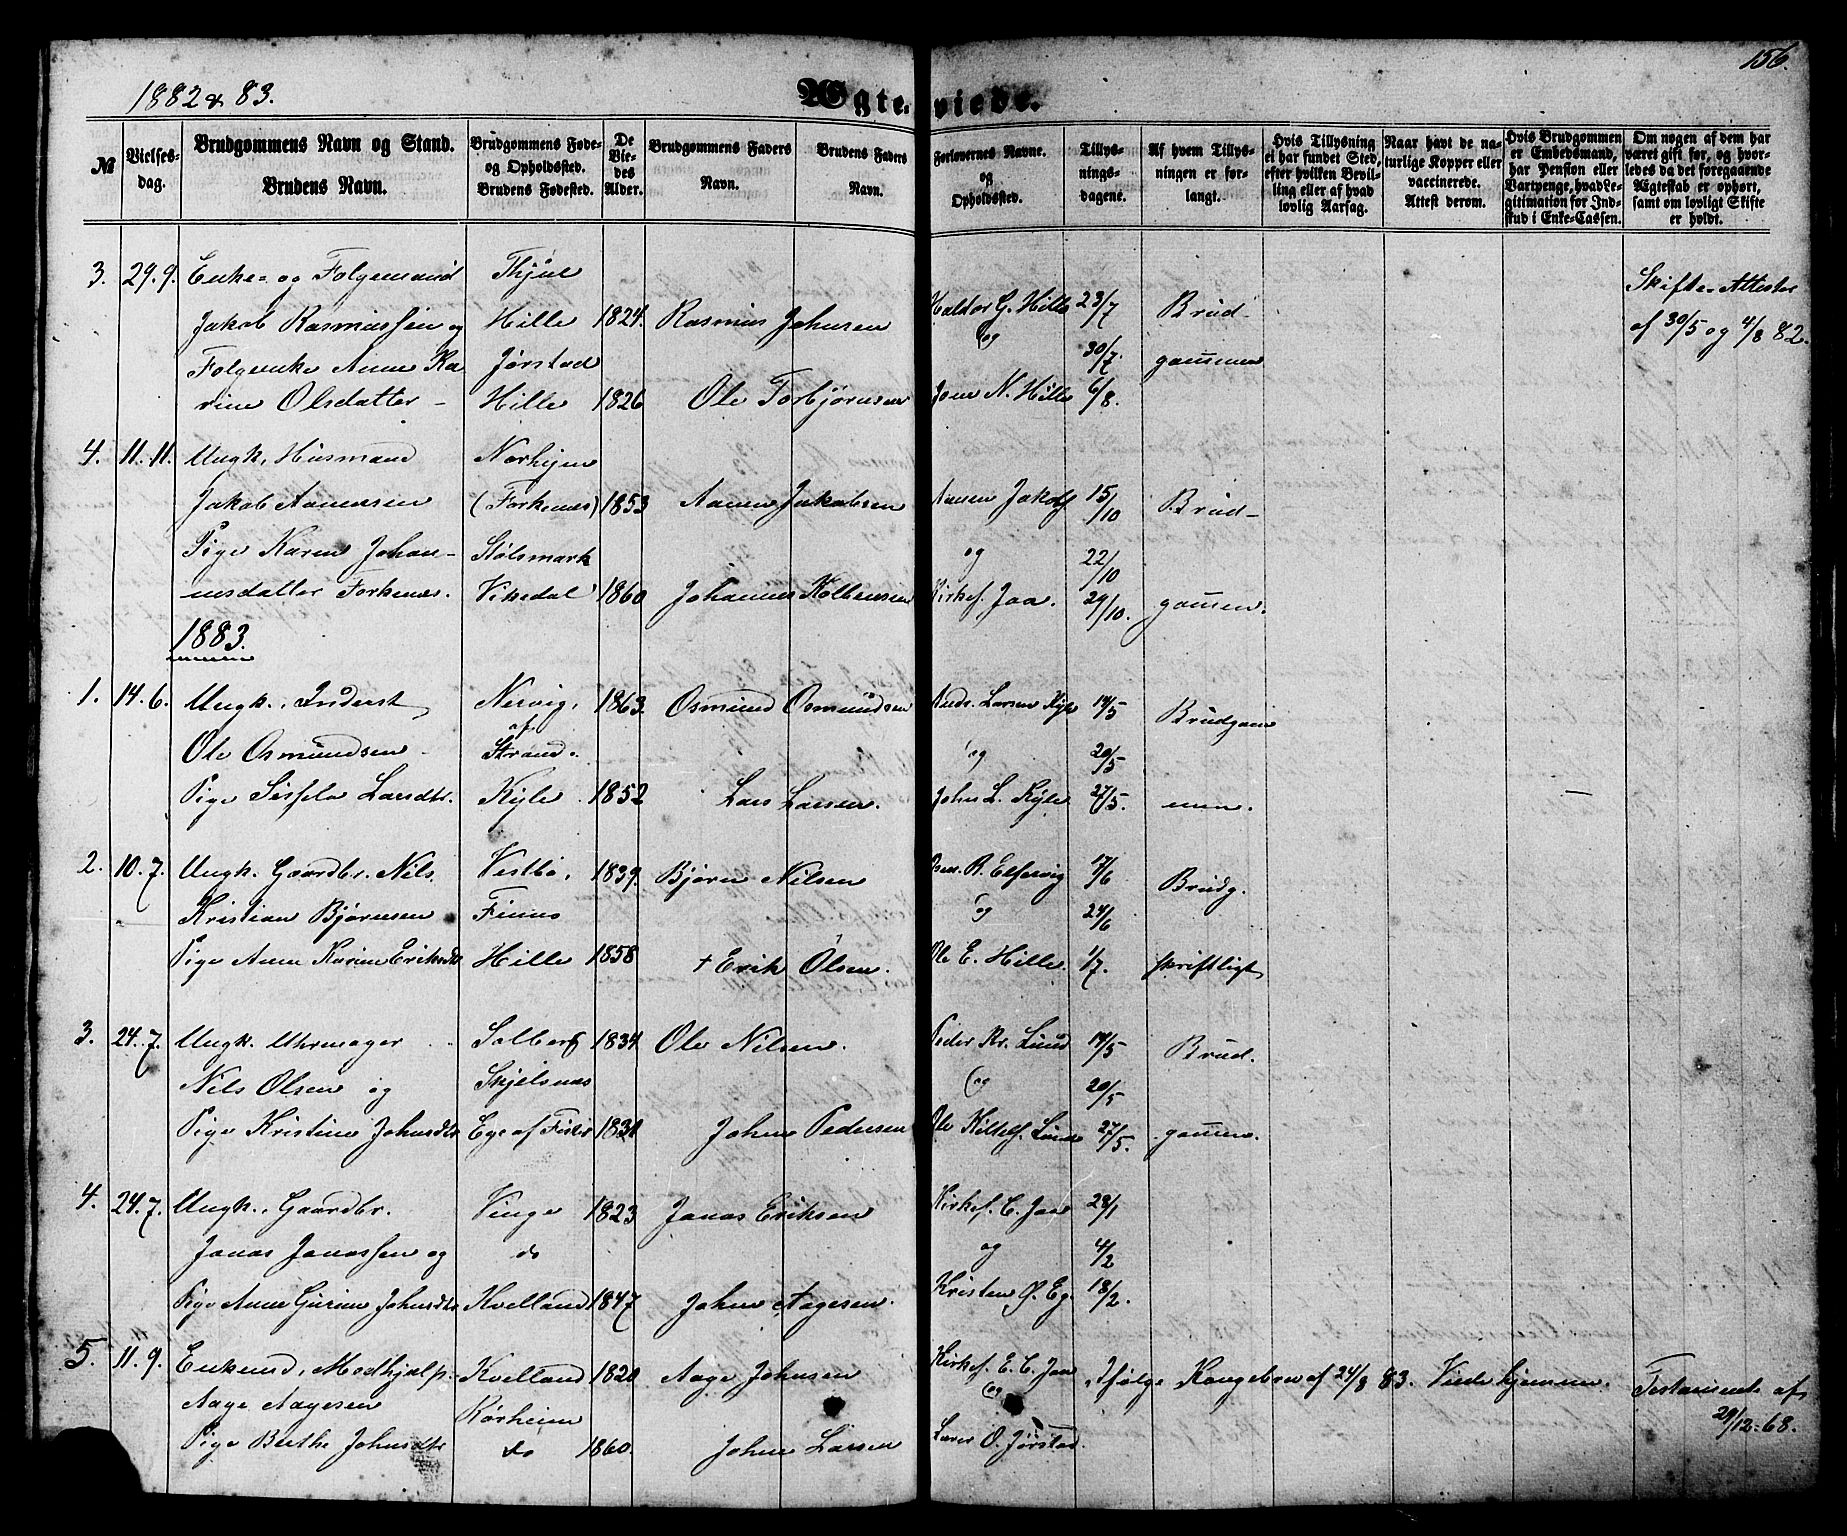 1882 & 83.
Ægteviede.
156.
No
Vielses-
dag.
Brudgommens Navn og Stand.
Brudens Navn.
Brudgommens Føde-
og Opholdssted.
Brudens Fødested.
De
Vie-
des
Alder.
Brudgommens Faders
Navn.
Brudens Faders
Navn.
Forlovernes Navne.
og
Opholdssted.
Tillys-
nings-
dagene.
Af hvem Tillys-
ningen er for-
langt.
Hvis Tillysning
ei har fundet Sted,
efter hvilken Bevil-
ling eller af hvad
lovlig Aarsag.
Naar havt de na-
turlige Kopper eller
vaccinerede.
Attest derom.
Hvis Brudgommen
er Embedsmand,
har Pension eller
Vartpenge, hvad Le-
gitimation for Ind-
skud i Enke-Cassen.
Om nogen af dem har
været gift før, og hvor-
ledes da det foregaaende
Ægteskab er ophørt,
samt om lovligt Skifte
er holdt.
3. 29.9. Enke- og Folgemand Thjul Skifte-Attester
Jakob Rasmussen og Hille 1824. Rasmus Johnsen Haldor G. Hille 23/7 Brud- af 30/5 og 4/8 82.
og
Folgeenke Anne Ka Jørstad 30/7. gommen
rine Olsdatter - Hille 1826 Ole Torbjørnsen Jone N. Hille 6/8.
4. 11.11. Ungk. Husmand Norheim
Jakob Aamesen (Forkenæs) 1853 Aamen Jakobsen Aamen Jakobs 15/10 Brud-
Pige Karen Johan- Stølsmark og 22/10
nesdatter Forkenæs. Vikedal 1860 Johannes Kolbensen Kirkes. Jaa. 29/10. gommen.
1883.
1. 14.6. Ungk., Inderst Nervig, 1863. Osmund Osmundsen Ands. Larsen Kyle 14/5 Brudgom
af
Ole Osmundsen Strand. og 20/5
Pige Sissela Larsdtr. Kyle. 1852 Lars Larsen. John L. Kyle 27/5. men.
2. 10.7. Ungk. Gaardbr. Nils Vestbø, 1839. Bjørn Nilsen R. Elfsvig 17/6 Brudg.
Kristian Bjørnsen Finnø og 24/6
Pige Anne Karine Eriksdtr Hille 1858 + Erik Olsen. Ole E. Hille. 1/7. skriftligt
3. 24.7. Ungk. Uhrmager Solberg 1834 Ole Nilsen. Peder Kr. Lund 14/5 Brud.
Nils Olsen og Skjelsnæs og 20/5
Pige Kristine Johnsdtr Ege af Fister 1831 John Pedersen Ole Lund 27/5. gommen.
4. 24.7. Ungk., Gaardbr. Vinge 1823 Jonas Eriksen Kirkes. E. Jaa 28/1
Jonas Jonassen og do og 4/2
Pige Anne Gurine Johnsdtr Kvelland 1847 John Aagesen. Kristen O. Eg. 18/2.
5. 11.9. Enkemd, Medhjælp. Kvelland 1820 Aage Johnsen Kirkes. E. C. Jaa Ifølge Kongebrev af 24/8 83. Viede hjemme. Testamente af
og
Aage Aagesen Rørheim 29/12-68.
Pige Berthe Johnsdtr do 1860. John Larsen Lærer O. Jørstad.